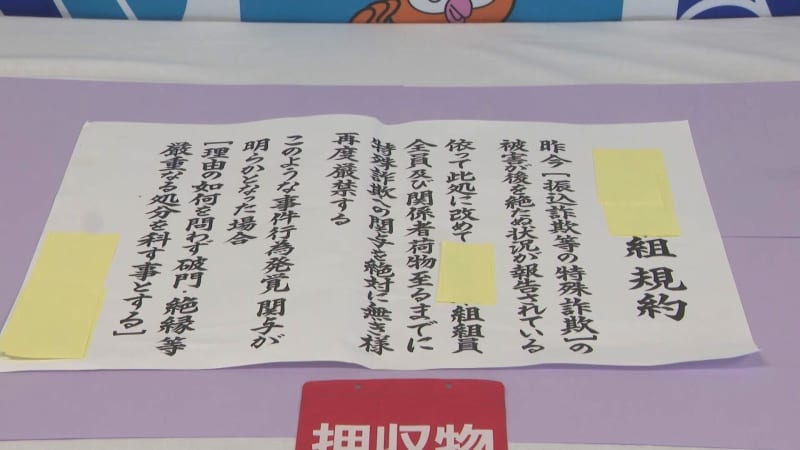 組規約
昨今[振込詐欺等の特殊詐欺]の
被害が後を絶た状況が報告されている
依って此処に改めて 組組員
全員及び関係者荷物至るまでに
特殊詐欺への関与を絶対に無き様
再度厳禁する
このような事件行為発覚関与が
明らかとなった場合
[理由の如何を問わず破門・絶縁等
厳重なる処分を科す事とする]
押収物